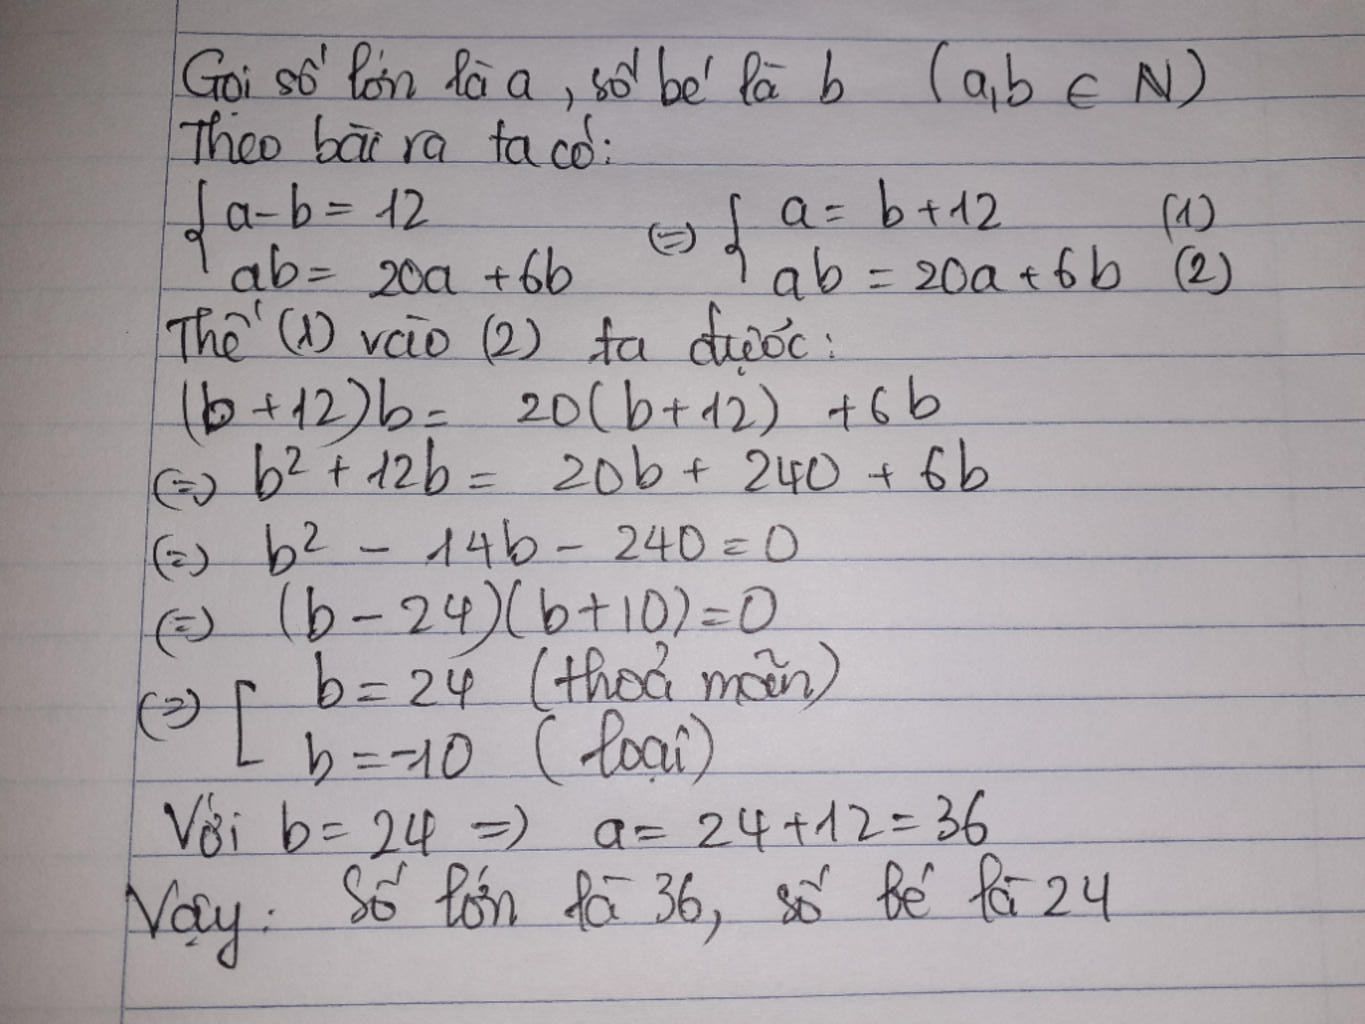 Gọi số lớn là a, số bé là b (a,b ∈ N)
Theo bài ra ta có:
{ a-b = 12 (=) { a = b+12 (1)
ab = 20a +6b ab = 20a+6b (2)
Thế (1) vào (2) ta được:
(b+12)b = 20(b+12) +6b
(=) b² + 12b = 20b + 240 + 6b
(=) b² - 14b - 240 = 0
(=) (b-24)(b+10)=0
(=) [ b=24 (thoả mãn)
b=-10 (loại)
Với b=24 => a= 24+12=36
Vậy: Số lớn là 36, số bé là 24